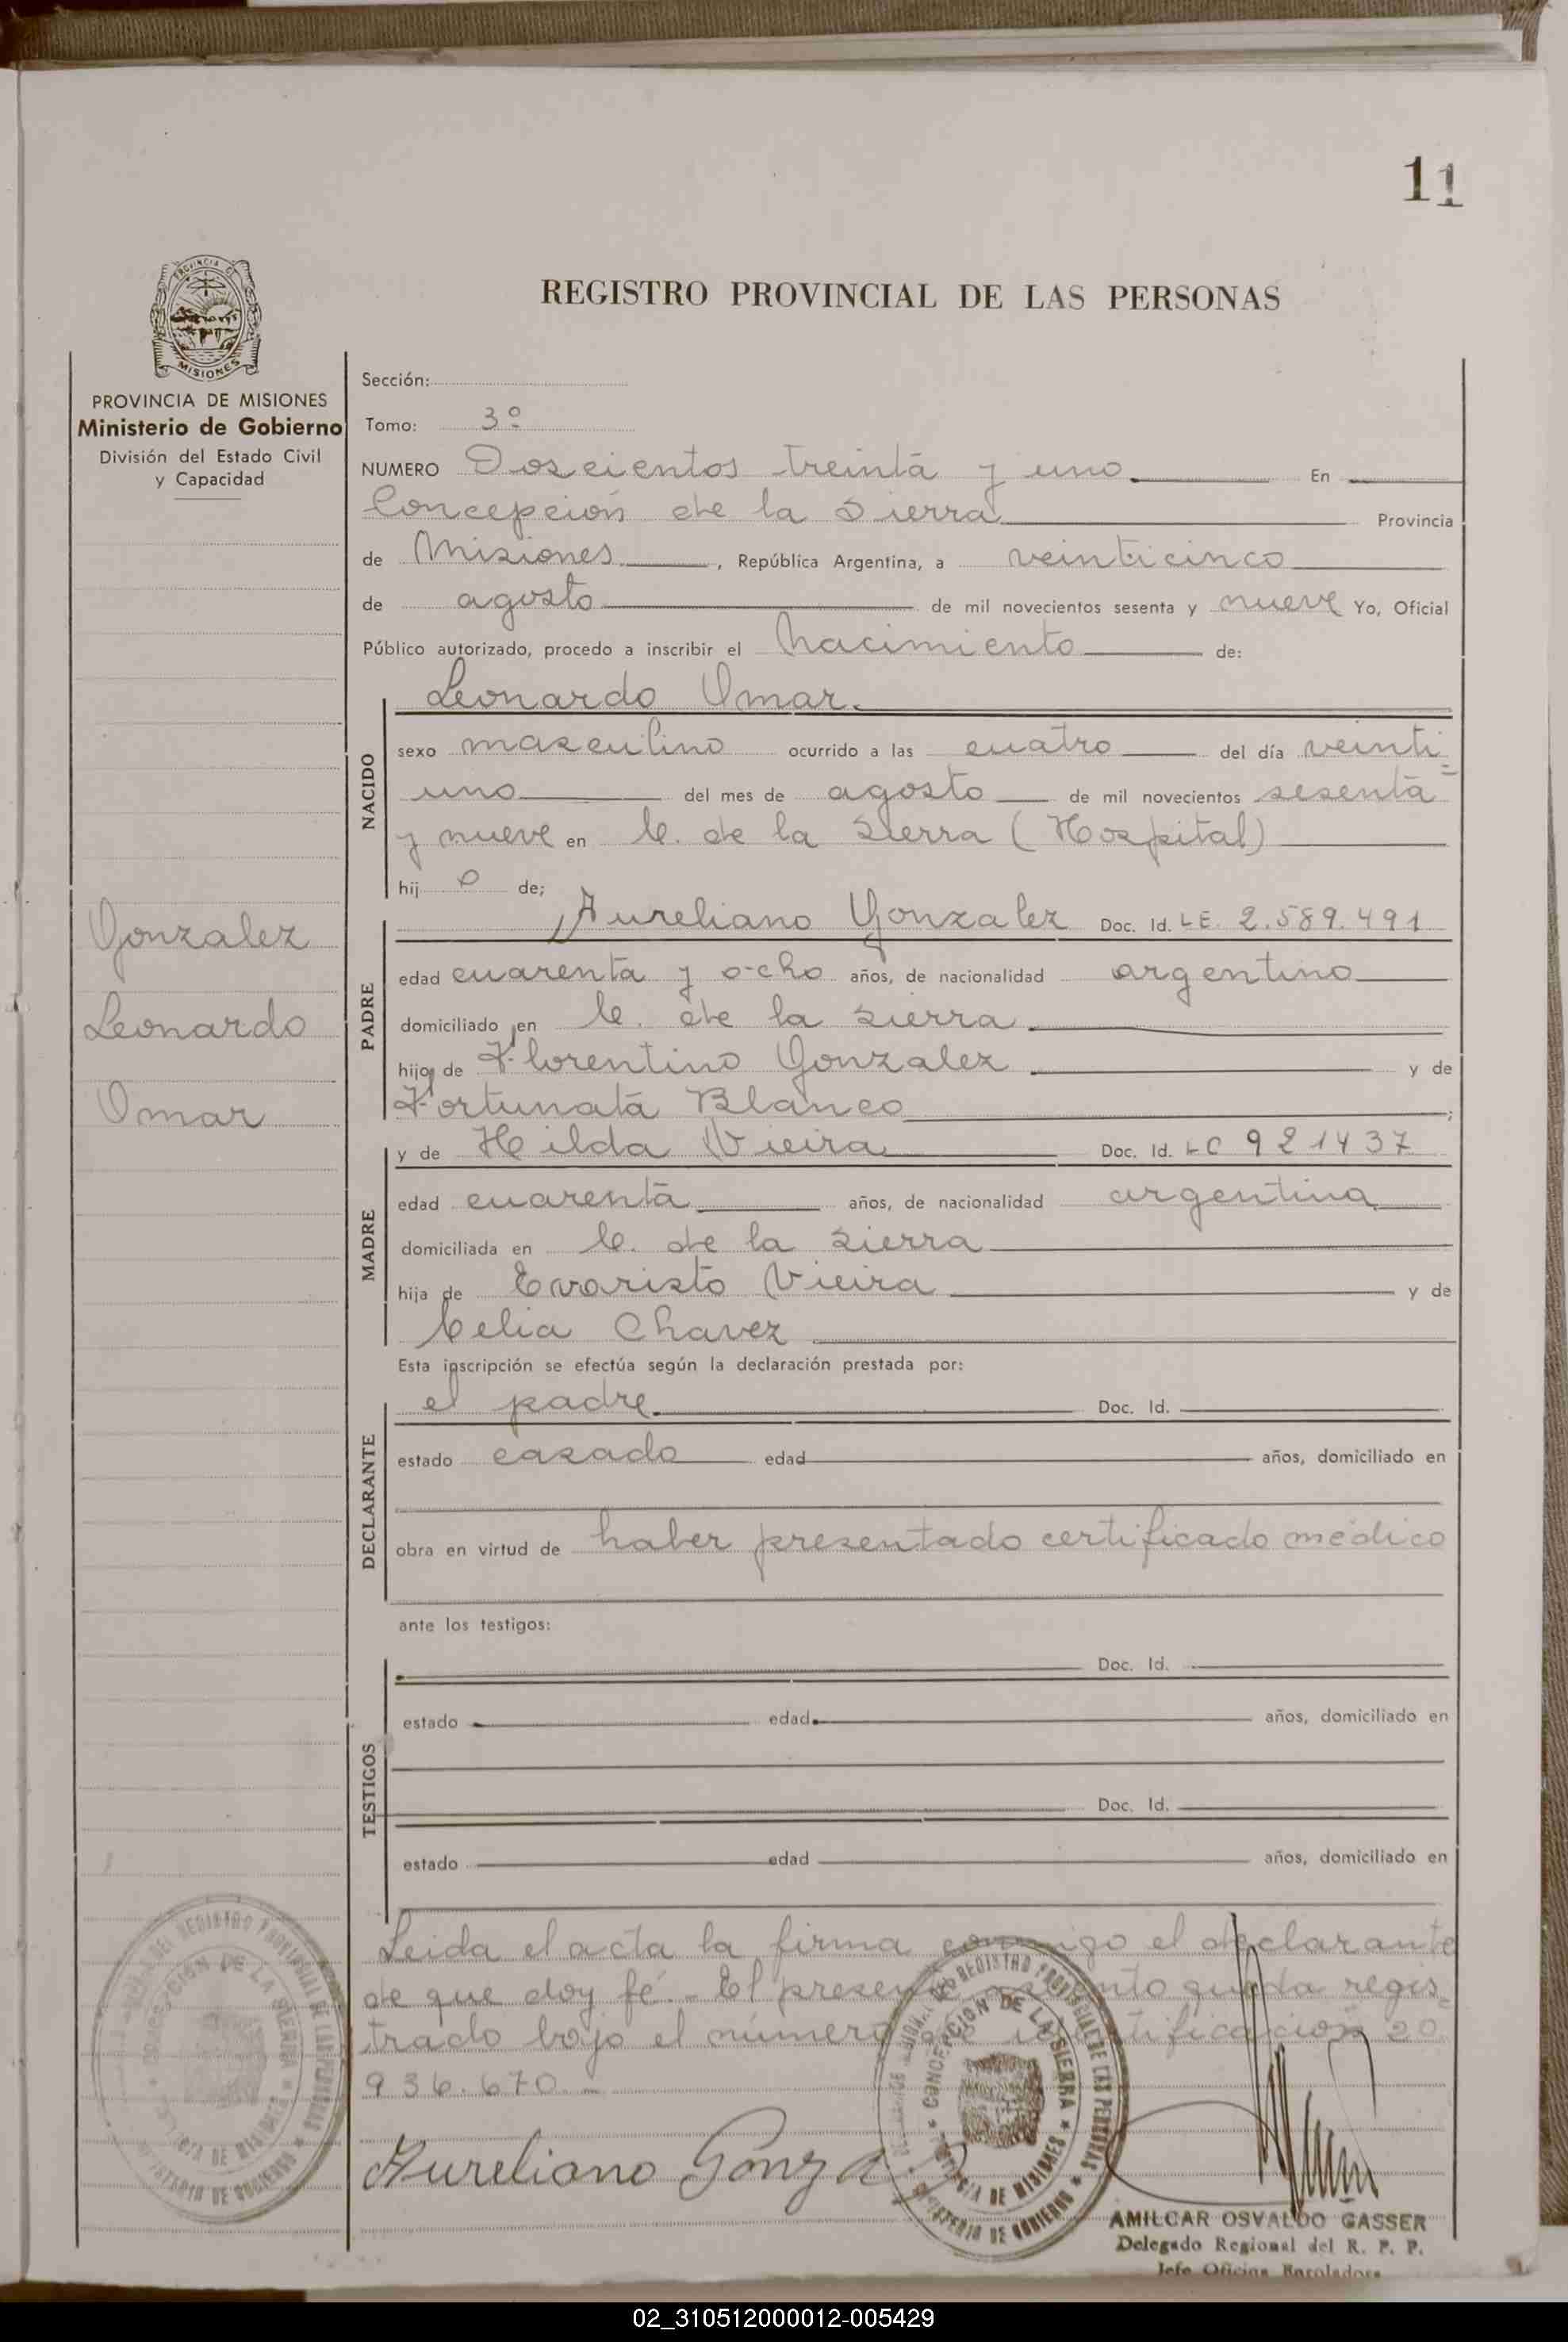 11
PROVINCIA DE
MISIONES
REGISTRO PROVINCIAL DE LAS PERSONAS
PROVINCIA DE MISIONES
Ministerio de Gobierno
División del Estado Civil
y Capacidad
Sección:
Tomo: 3º
NUMERO Doscientos treinta y uno En
Concepción de la Sierra Provincia
de Misiones, República Argentina, a veinticinco
de agosto de mil novecientos sesenta y nueve Yo, Oficial
Público autorizado, procedo a inscribir el Nacimiento de:
Leonardo Omar.
NACIDO
sexo masculino ocurrido a las cuatro del día veinti=
uno del mes de agosto de mil novecientos sesenta
y nueve en C. de la Sierra (Hospital)
hij o de;
Gonzalez
Leonardo
Omar
PADRE
Aureliano Gonzalez Doc. Id. LE. 2.589.491
edad cuarenta y ocho años, de nacionalidad argentino
domiciliado en C. de la Sierra
hijo de Florentino Gonzalez y de
Fortunata Blanco;
MADRE
y de Hilda Vieira Doc. Id. LC 921437
edad cuarenta años, de nacionalidad argentina
domiciliada en C. de la Sierra
hija de Evaristo Vieira y de
Celia Chavez
Esta inscripción se efectúa según la declaración prestada por:
DECLARANTE
el padre. Doc. Id.
estado casado edad años, domiciliado en
obra en virtud de haber presentado certificado médico
ante los testigos:
TESTIGOS
Doc. Id.
estado edad años, domiciliado en
Doc. Id.
estado edad años, domiciliado en
Leida el acta la firma conmigo el declarante
de que doy fé.- El presente asiento queda regis=
trado bajo el número de identificación 20.
936.670.-
Aureliano Gonza
REGISTRO PROVINCIAL DE LAS PERSONAS
CONCEPCION DE LA SIERRA
PROVINCIA DE MISIONES
MINISTERIO DE GOBIERNO
REGISTRO PROVINCIAL DE LAS PERSONAS
CONCEPCION DE LA SIERRA
PROVINCIA DE MISIONES
MINISTERIO DE GOBIERNO
AMILCAR OSVALDO GASSER
Delegado Regional del R. P. P.
Jefe Oficina Enroladora
02_310512000012-005429